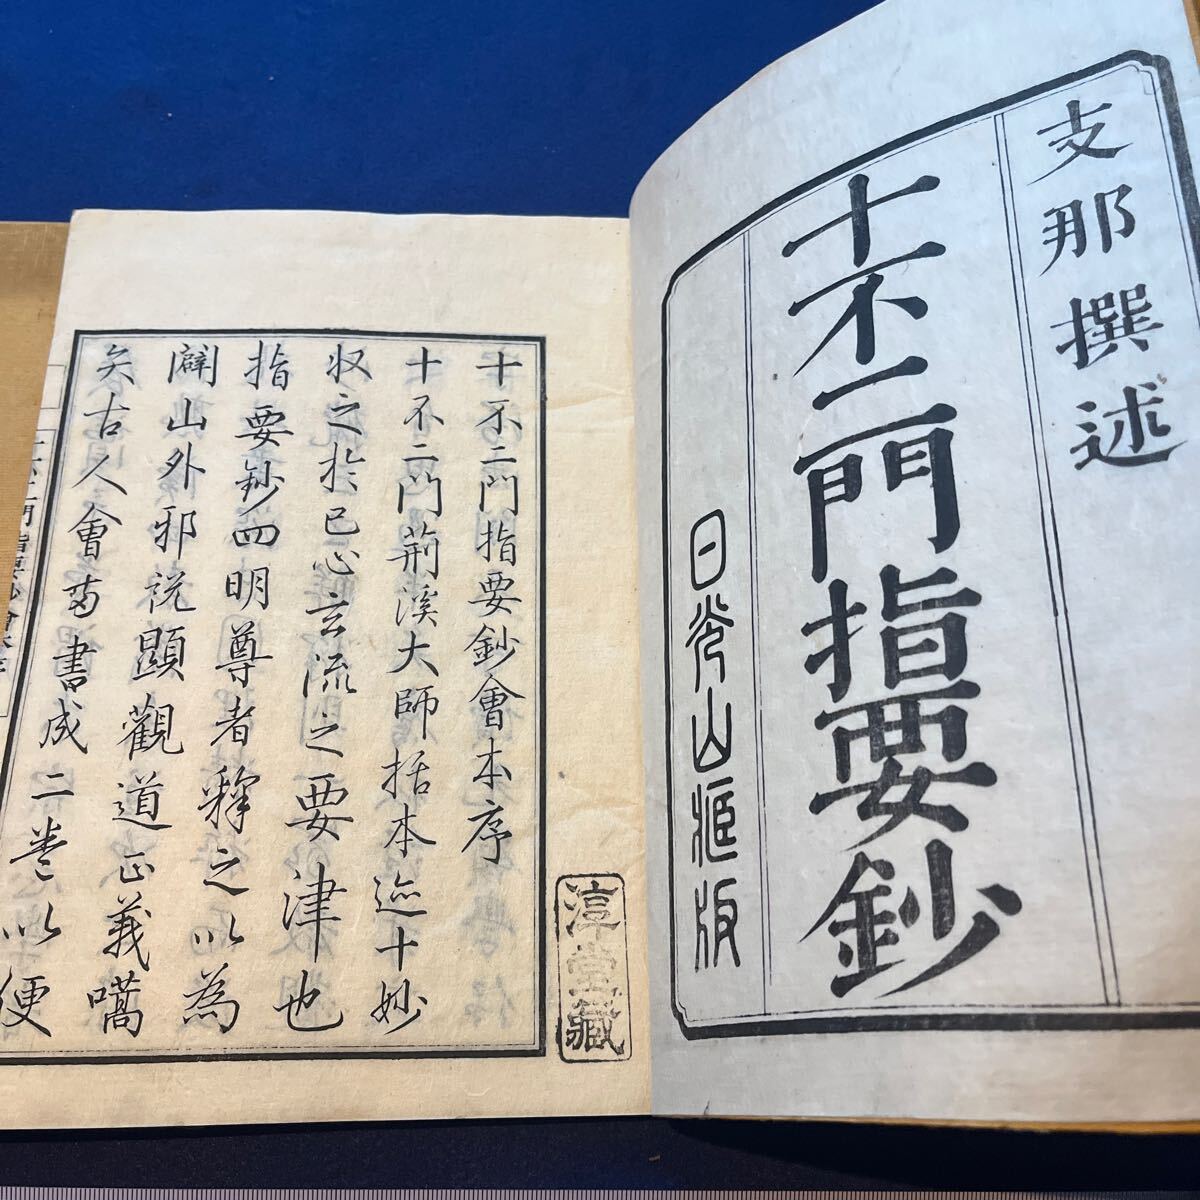 支那撰述
十不二門指要鈔
日光山版
十不二門指要鈔會本序
十不二門荊溪大師括本迹十妙
収之於己心玄流之要津也
指要鈔四明尊者釋之以為
闢山外邪説顯觀道正義嚆
矢古人會両書成二巻以便
淳堂藏